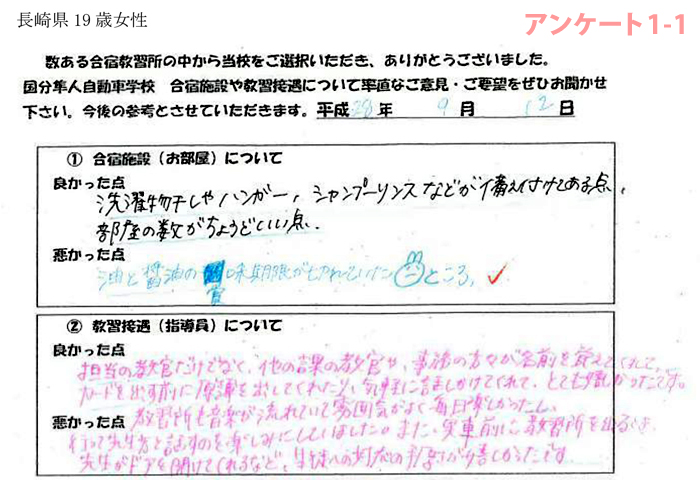 長崎県 19 歳女性
アンケート1-1
数ある合宿教習所の中から当校をご選択いただき、ありがとうございました。
国分隼人自動車学校　合宿施設や教習接遇について率直なご意見・ご要望をぜひお聞かせ
下さい。今後の参考とさせていただきます。平成28年 9月 12日
① 合宿施設（お部屋）について
良かった点
洗濯物干しやハンガー, シャンプーリンスなどが備え付けてある点,
部屋の数がちょうどいい点.
悪かった点
油と醤油の賞味期限が切れていた ところ,
② 教習接遇（指導員）について
良かった点
担当の教官だけでなく、他の 教官や、事務の方々が名前を覚えてくれて、
カードを出す前に 出してくれたり、気軽に話しかけてくれて、とても嬉しかったです。
悪かった点
教習所も音楽が流れていて雰囲気がよく毎日楽しかったし、
行って先生方と話すのを楽しみにしていました。また、実車前に教習所を出るとき
先生がドアを開けてくれるなど、生徒への対応の が嬉しかったです